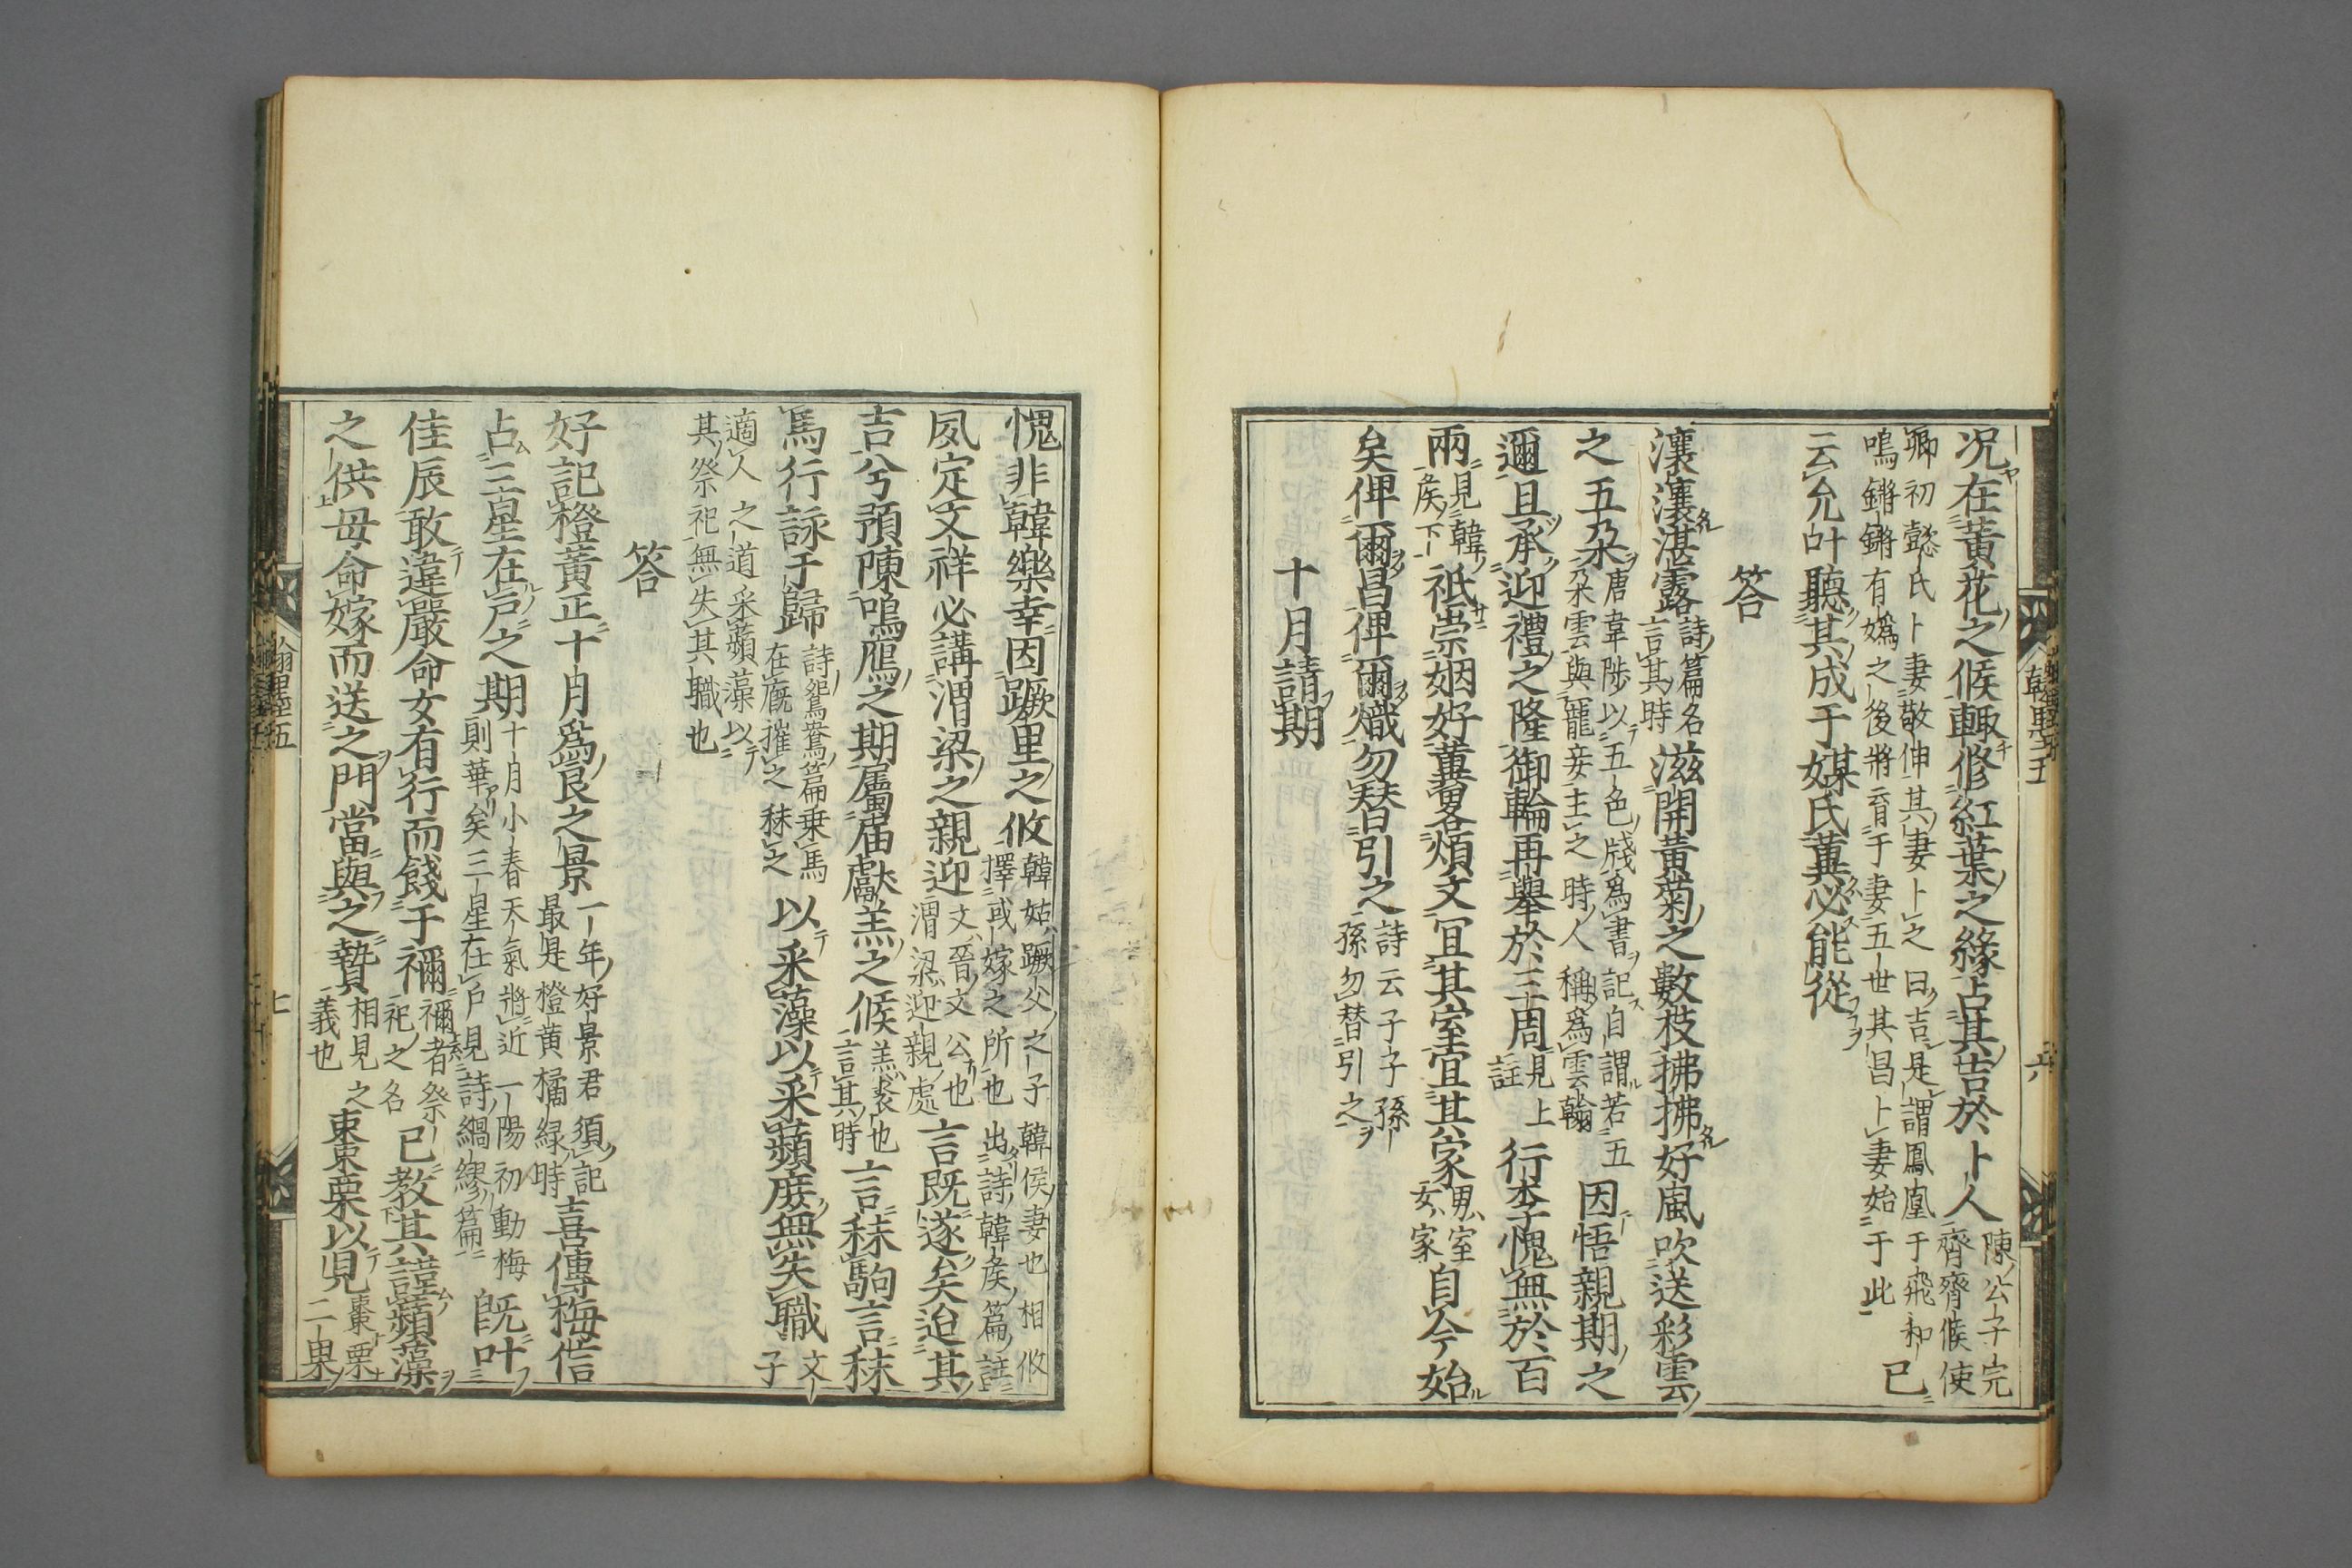 况在黃花之候輙修紅葉之緣占其吉於卜人陳公子完齊齊候使
卿初懿氏卜妻敬仲其妻卜之曰吉是謂鳳凰于飛和
鳴鏘鏘有媯之後將育于妻五世其昌卜妻始于此已
云允叶聽其成于媒氏蓂必能從
答
瀼瀼湛露詩篇名言其時滋開黃菊之數枝拂拂好風吹送彩雲
之五朶唐韋陟以五色牋爲書記自謂若五朶雲與寵妾主之時人稱爲雲翰因悟親期之
邇且承迎禮之隆御輪再舉於三周見上註行李愧無於百
兩見韓矦下祇崇姻好黃畧煩文宜其室宜其家男室女家自今始
矣俾爾昌俾爾熾勿替引之詩云子子孫孫勿替引之
十月請期
愧非韓樂幸因蹶里之攸韓姑蹶父之子韓侯妻也相攸擇或嫁之所也出詩韓矦篇諺
夙定文祥必講渭梁之親迎文晉文公也渭梁迎親處言既遂矣迨其
吉兮預陳鳴鴈之期屬届獻羔之候羔裘也言其時言秣駒言秣
馬行詠于歸詩鴛鴦篇乗馬在厩摧之秣之以采藻以采蘋庶無失職文子
適人之道采蘋藻以其祭祀無失其職也
答
好記橙黃正十月爲良之景一年好景君須記最是橙黄橘緑時喜傳梅信
占三星在戸之期十月小春天氣將近一陽初動梅則華矣三星在戸見詩綢繆篇既叶
佳辰敢違嚴命女有行而餞于禰禰者祭祀之名已教其諳蘋藻
之供母命嫁而送之門當與之贄相見之義也東棗栗以見棗栗二果
翰墨五
七
翰墨五
六